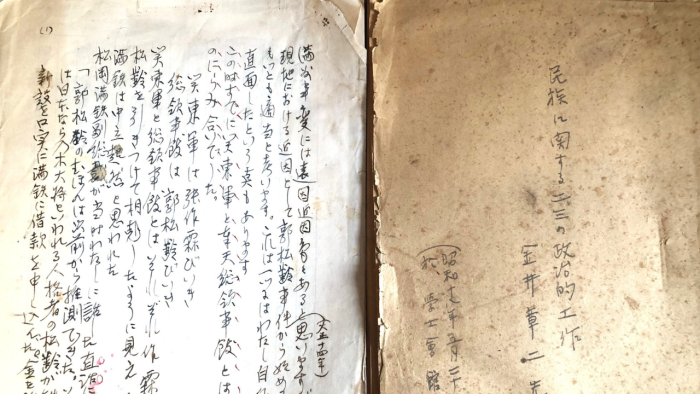 民族に関する二三の政治的工作
井章二
(昭和十九年五月二十
於 学士會館
(1)
満洲事変には遠因近因等とあると思います
(大正十四年)
現地における近因として郭松齢事件から始め
もっとも適当と考います。一ツはわたし自
直面したという点もあります
すでに関東軍と奉天総領事館とは
のにらみ合でした。
関東軍は張作霖びいき
総領事館は郭松齢びいき
関東軍と総領事館とはそれぞれ作霖
松齢を引きつけて相剋したように見え
満鉄は中立超然と思われた
松岡満鉄副総裁が当時わたしに話した直話
「郭松齢のむほんは以前から推測できた。
は日本なら乃木大将といわれる人格者の松齢が
新設を口実に満鉄に借款を申し込んだ。金を